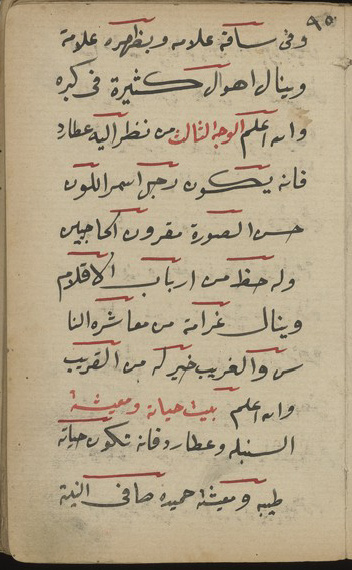 ٩٥
وفى ساقه علامه وبظهره علامة
وينال اهوال كثيرة فى كبره
والله اعلم الوجه الثالث من نظر اليه عطارد
فانه يكون رجل اسمر اللون
حسن الصورة مقرون الحاجبين
وله حظ من ارباب الاقلام
وينال غرامة من معاشره النا
س والغريب خير له من القريب
والله اعلم بيت حياته ومعيشة
السنبله وعطارد فانه تكون حياته
طيبه ومعيشة حميده صافى النية